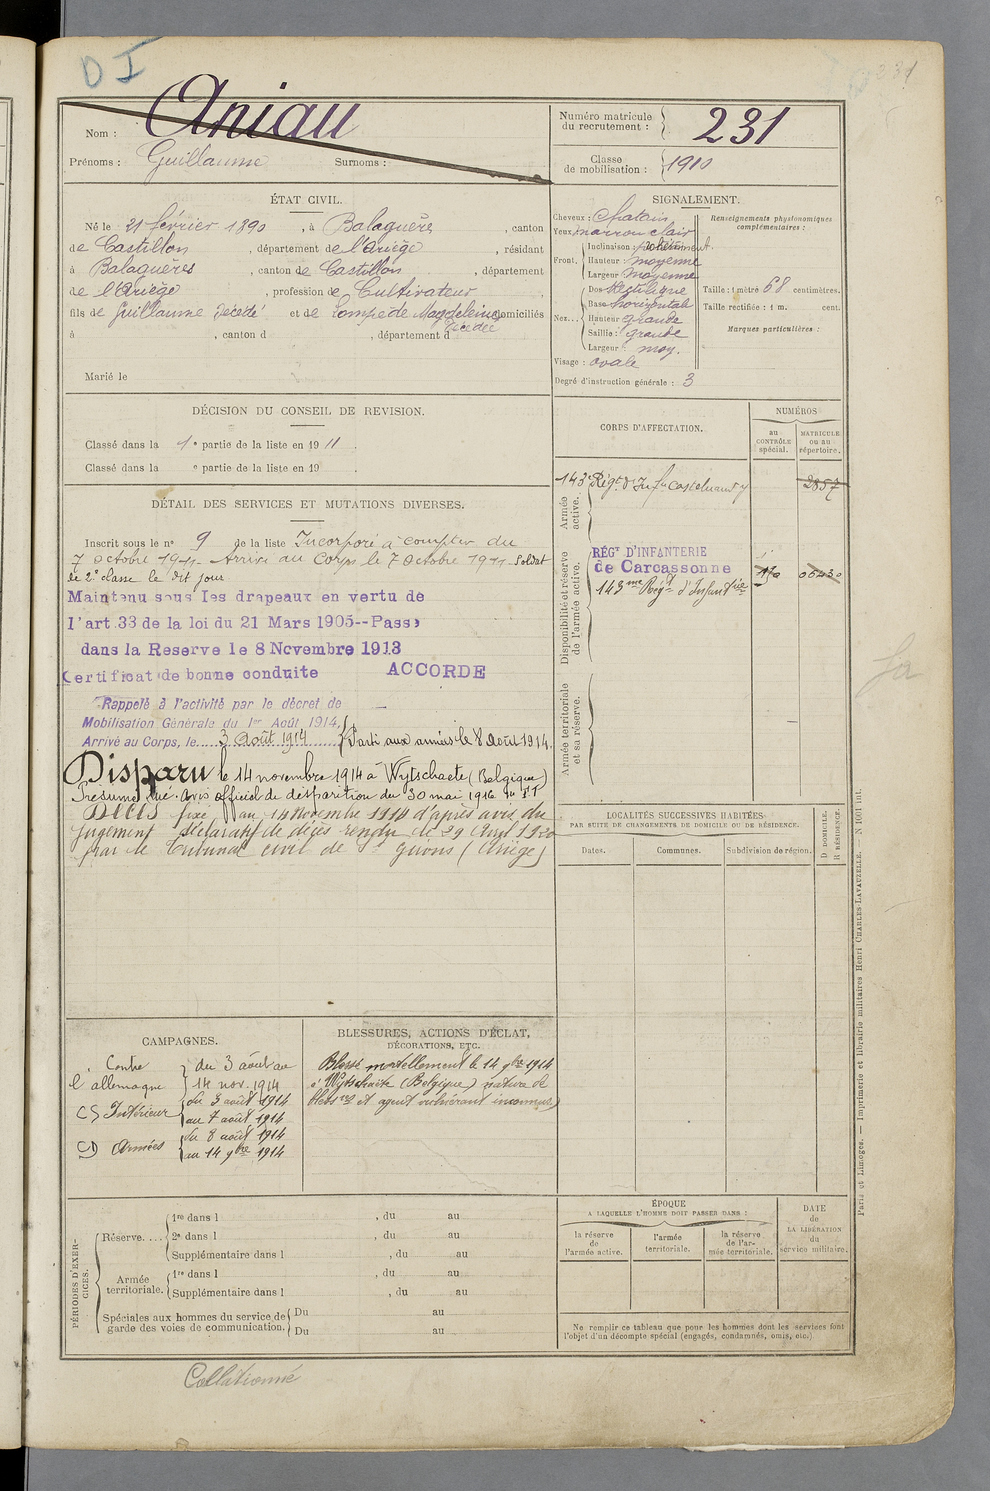 DI
231
Nom : Aniau
Prénoms : Guillaume Surnoms :
Numéro matricule du recrutement : 231
Classe de mobilisation : 1910
ÉTAT CIVIL.
Né le 21 février 1890, à Balaguères, canton
de Castillon, département de l'Ariège, résidant
à Balaguères, canton de Castillon, département
de l'Ariège, profession de Cultivateur
fils de Guillaume décédé et de Magdeleine domiciliés
décédée
à , canton d , département d
Marié le
SIGNALEMENT.
Cheveux : Chatain
Yeux marron clair
Front. Inclinaison :
Hauteur : moyenne
Largeur : moyenne
Nez... Dos Rectiligne
Base horizontale
Hauteur grande
Saillie : grande
Largeur : moy.
Visage : ovale
Degré d'instruction générale : 3
Renseignements physionomiques
complémentaires :
Taille : 1 mètre 68 centimètres.
Taille rectifiée : 1 m. cent.
Marques particulières :
DÉCISION DU CONSEIL DE REVISION.
Classé dans la 1e partie de la liste en 1911.
Classé dans la e partie de la liste en 19 .
DÉTAIL DES SERVICES ET MUTATIONS DIVERSES.
Inscrit sous le no 9 de la liste Incorporé à compter du
7 octobre 1911. Arrivé au Corps le 7 Octobre 1911. Soldat
de 2e classe le dit jour
Maintenu sous les drapeaux en vertu de
l'art.33 de la loi du 21 Mars 1905--Passé
dans la Reserve le 8 Novembre 1913
Certificat de bonne conduite ACCORDE
Rappelé à l'activité par le décret de
Mobilisation Générale du 1er Août 1914,
Arrivé au Corps, le 3 Août 1914 } Parti aux armées le 8 Août 1914.
Disparu le 14 novembre 1914 à Wytschaete (Belgique)
Présumé tué. Avis officiel de disparition du 30 mai 1916
Décès fixé au 14 Novembre 1914 d'après avis du
jugement déclaratif de décès rendu le 29 Avril 1920
par le Tribunal civil de St Girons (Ariège)
CORPS D'AFFECTATION.
NUMÉROS
au CONTRÔLE spécial.
MATRICULE ou au répertoire.
Armée active.
143e Régt d'Inf ie Castelnaudary 2857
Disponibilité et réserve de l'armée active.
RÉGT D'INFANTERIE
de Carcassonne
143me Régt d'Infanterie
Armée territoriale et sa réserve.
LOCALITÉS SUCCESSIVES HABITÉES
PAR SUITE DE CHANGEMENTS DE DOMICILE OU DE RÉSIDENCE.
Dates. Communes. Subdivision de région.
D DOMICILE. R RÉSIDENCE.
CAMPAGNES.
Contre l'allemagne } du 3 août au 14 nov. 1914
CS Intérieur } du 3 août 1914 au 7 août 1914
CD Armées } du 8 août 1914 au 14 9bre 1914
BLESSURES, ACTIONS D'ÉCLAT,
DÉCORATIONS, ETC.
Blessé mortellement le 14 9bre 1914
à Wytschaete (Belgique) nature de
bless res et agent vulnérant inconnus)
PÉRIODES D'EXERCICES.
Réserve.... 1re dans l , du au
2e dans l , du au
Supplémentaire dans l , du au
Armée territoriale. 1re dans l , du au
Supplémentaire dans l , du au
Spéciales aux hommes du service de garde des voies de communication. Du au
Du au
ÉPOQUE
A LAQUELLE L'HOMME DOIT PASSER DANS :
la réserve de l'armée active.
l'armée territoriale.
la réserve de l'armée territoriale.
DATE de LA LIBÉRATION du service militaire.
Ne remplir ce tableau que pour les hommes dont les services font
l'objet d'un décompte spécial (engagés, condamnés, omis, etc.)
Paris et Limoges. — Imprimerie et librairie militaires Henri CHARLES-LAVAUZELLE. — N 1001 int.
Collationné